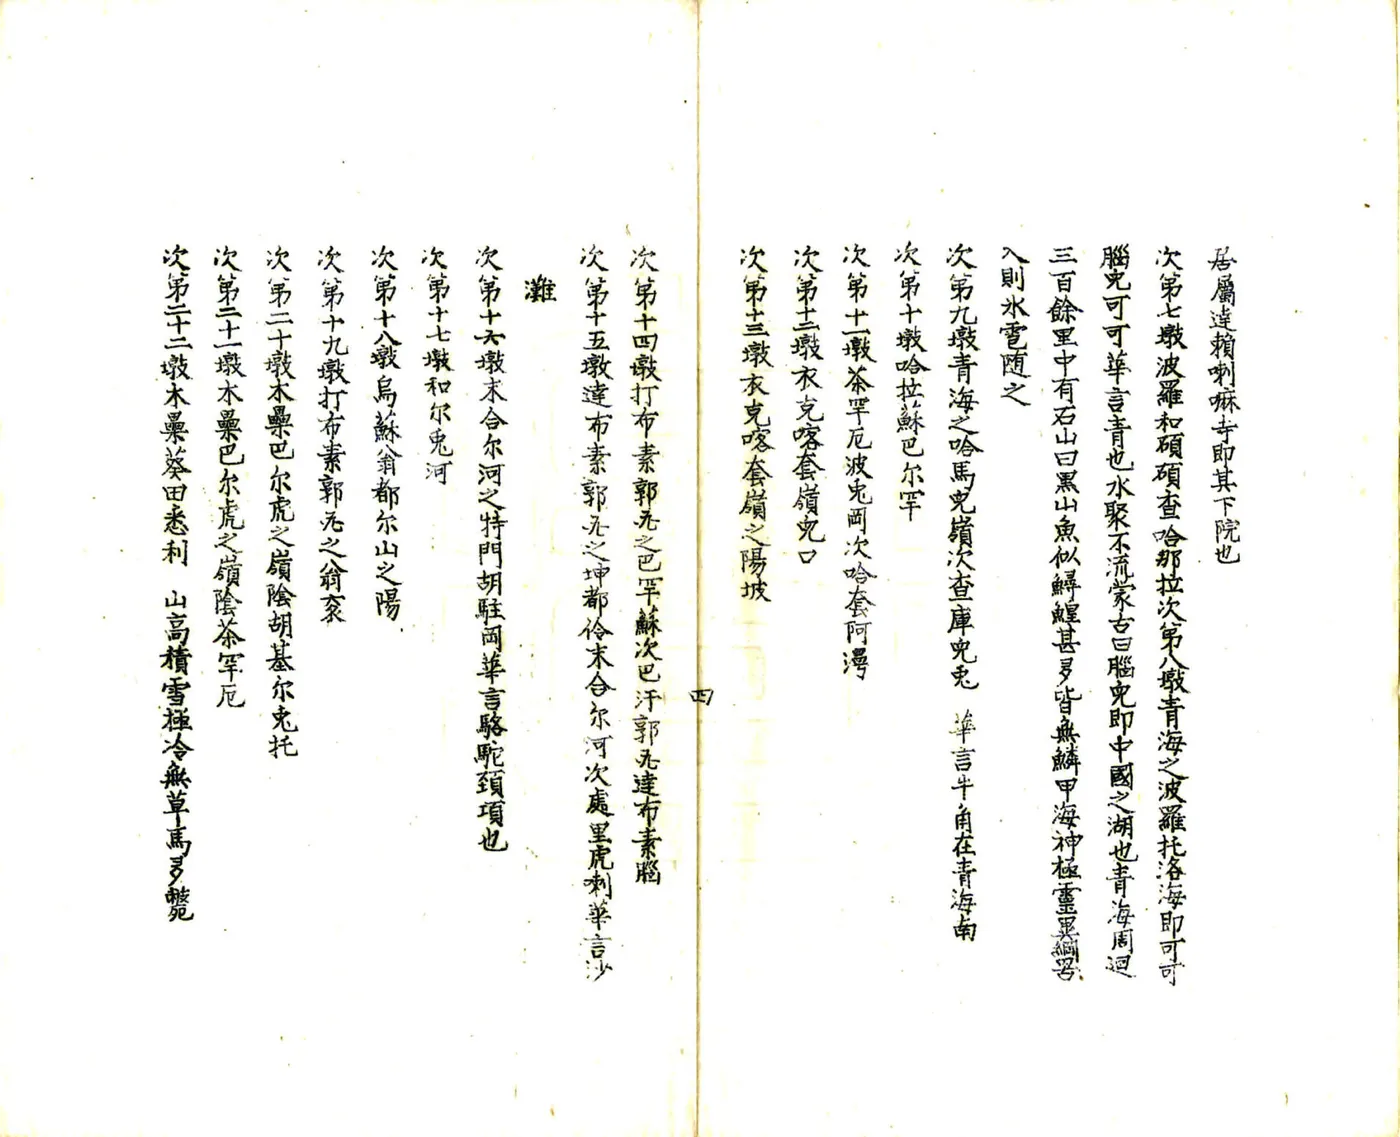 居屬達賴喇嘛寺即其下院也
次第七墩波羅和碩碩查哈那拉次第八墩青海之波羅托洛海即可可
腦皃可可華言青也水聚不流蒙古曰腦皃即中國之湖也青海周迴
三百餘里中有石山曰黑山魚似鱘鰉甚多皆無鱗甲海神極靈異網罟
入則氷雹随之
次第九墩青海之哈馬皃嶺次查庫皃兎 華言牛角在青海南
次第十墩哈拉蘇巴尔罕
次第十一墩茶罕厄波兎岡次哈套阿灣
次第十二墩衣克喀套嶺皃口
次第十三墩衣克喀套嶺之陽坡
四
次第十四墩打布素郭尼之巴罕蘇次巴汗郭尼達布素腦
次第十五墩達布素郭尼之坤都伶末合尔河次處里虎喇華言沙
灘
次第十六墩末合尔河之特門胡駐岡華言駱駝頸項也
次第十七墩和尔兎河
次第十八墩烏蘇翁都尔山之陽
次第十九墩打布素郭尼之翁衮
次第二十墩木壘巴尔虎之嶺陰胡基尔兎托
次第二十一墩木壘巴尔虎之嶺陰茶罕厄
次第二十二墩木壘葵田悉利 山高積雪極冷無草馬多斃